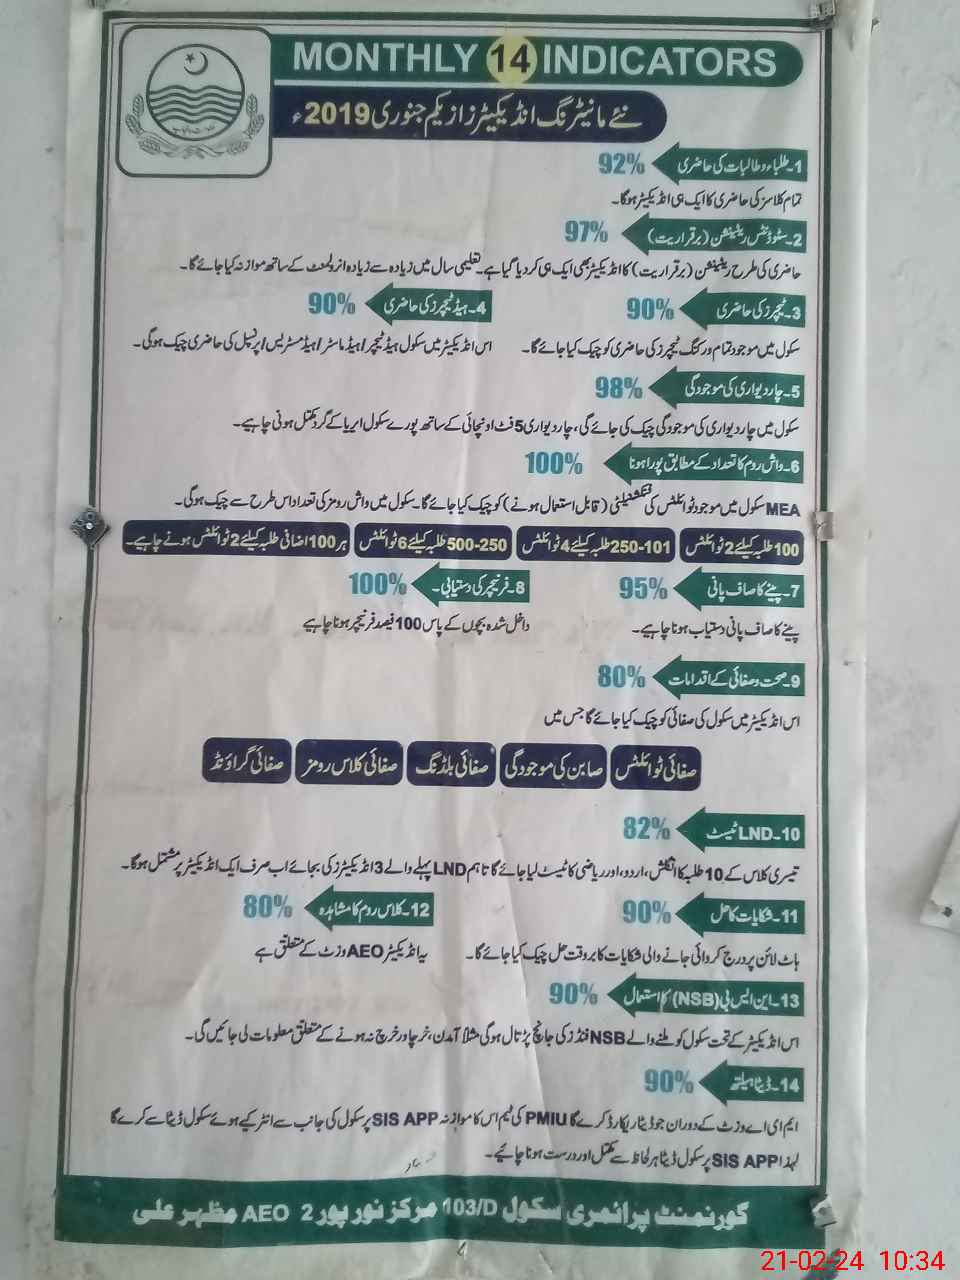 MONTHLY 14 INDICATORS
نئے مانیٹرنگ انڈیکیٹرز ازیکم جنوری 2019ء
1۔طلباء و طالبات کی حاضری 92%
تمام کلاسز کی حاضری کا ایک ہی انڈیکیٹر ہوگا۔
2۔سٹوڈنٹس ریٹینشن (برقراریت) 97%
حاضری کی طرح ریٹینشن (برقراریت) کا انڈیکیٹر بھی ایک ہی کر دیا گیا ہے۔ تعلیمی سال میں زیادہ سے زیادہ انرولمنٹ کے ساتھ موازنہ کیا جائے گا۔
3۔ٹیچرز کی حاضری 90%
سکول میں موجود تمام ورکنگ ٹیچرز کی حاضری کو چیک کیا جائے گا۔
4۔ہیڈ ٹیچرز کی حاضری 90%
اس انڈیکیٹر میں سکول ہیڈ ٹیچر/ہیڈ ماسٹر/ہیڈ مسٹریس/پرنسپل کی حاضری چیک ہوگی۔
5۔چار دیواری کی موجودگی 98%
سکول میں چار دیواری کی موجودگی چیک کی جائے گی، چار دیواری 5 فٹ اونچائی کے ساتھ پورے سکول ایریا کے گرد مکمل ہونی چاہیے۔
6۔واش روم کا تعداد کے مطابق پورا ہونا 100%
MEA سکول میں موجود ٹوائلٹس کی فنکشنیلٹی (قابل استعمال ہونے) کو چیک کیا جائے گا۔ سکول میں واش رومز کی تعداد اس طرح سے چیک ہوگی۔
100 طلبہ کیلئے 2 ٹوائلٹس
101-250 طلبہ کیلئے 4 ٹوائلٹس
250-500 طلبہ کیلئے 6 ٹوائلٹس
ہر 100 اضافی طلبہ کیلئے 2 ٹوائلٹس ہونے چاہیے۔
7۔پینے کا صاف پانی 95%
پینے کا صاف پانی دستیاب ہونا چاہیے۔
8۔فرنیچر کی دستیابی۔ 100%
داخل شدہ بچوں کے پاس 100 فیصد فرنیچر ہونا چاہیے
9۔صحت و صفائی کے اقدامات 80%
اس انڈیکیٹر میں سکول کی صفائی کو چیک کیا جائے گا جس میں
صفائی ٹوائلٹس
صابن کی موجودگی
صفائی بلڈنگ
صفائی کلاس رومز
صفائی گراؤنڈ
10۔LND ٹیسٹ 82%
تیسری کلاس کے 10 طلبہ کا انگلش، اردو، اور ریاضی کا ٹیسٹ لیا جائے گا تاہم LND پہلے والے 3 انڈیکیٹرز کی بجائے اب صرف ایک انڈیکیٹر پر مشتمل ہوگا۔
11۔شکایات کا حل 90%
ہاٹ لائن پر درج کروائی جانے والی شکایات کا بروقت حل چیک کیا جائے گا۔
12۔کلاس روم کا مشاہدہ 80%
یہ انڈیکیٹر AEO وزٹ کے متعلق ہے
13۔این ایس بی (NSB) کا استعمال 90%
اس انڈیکیٹر کے تحت سکول کو ملنے والے NSB فنڈز کی جانچ پڑتال ہوگی مثلاً آمدن، خرچ اور خرچ نہ ہونے کے متعلق معلومات لی جائیں گی۔
14۔ڈیٹا ہیلتھ 90%
ایم ای اے وزٹ کے دوران جو ڈیٹا ریکارڈ کرے گا PMIU کی ٹیم اس کا موازنہ SIS APP پر سکول کی جانب سے انٹر کیے ہوئے سکول ڈیٹا سے کرے گا
لہذا SIS APP پر سکول ڈیٹا ہر لحاظ سے مکمل اور درست ہونا چائیے۔
گورنمنٹ پرائمری سکول 103/D مرکز نور پور 2 AEO مظہر علی
21-02-24 10:34